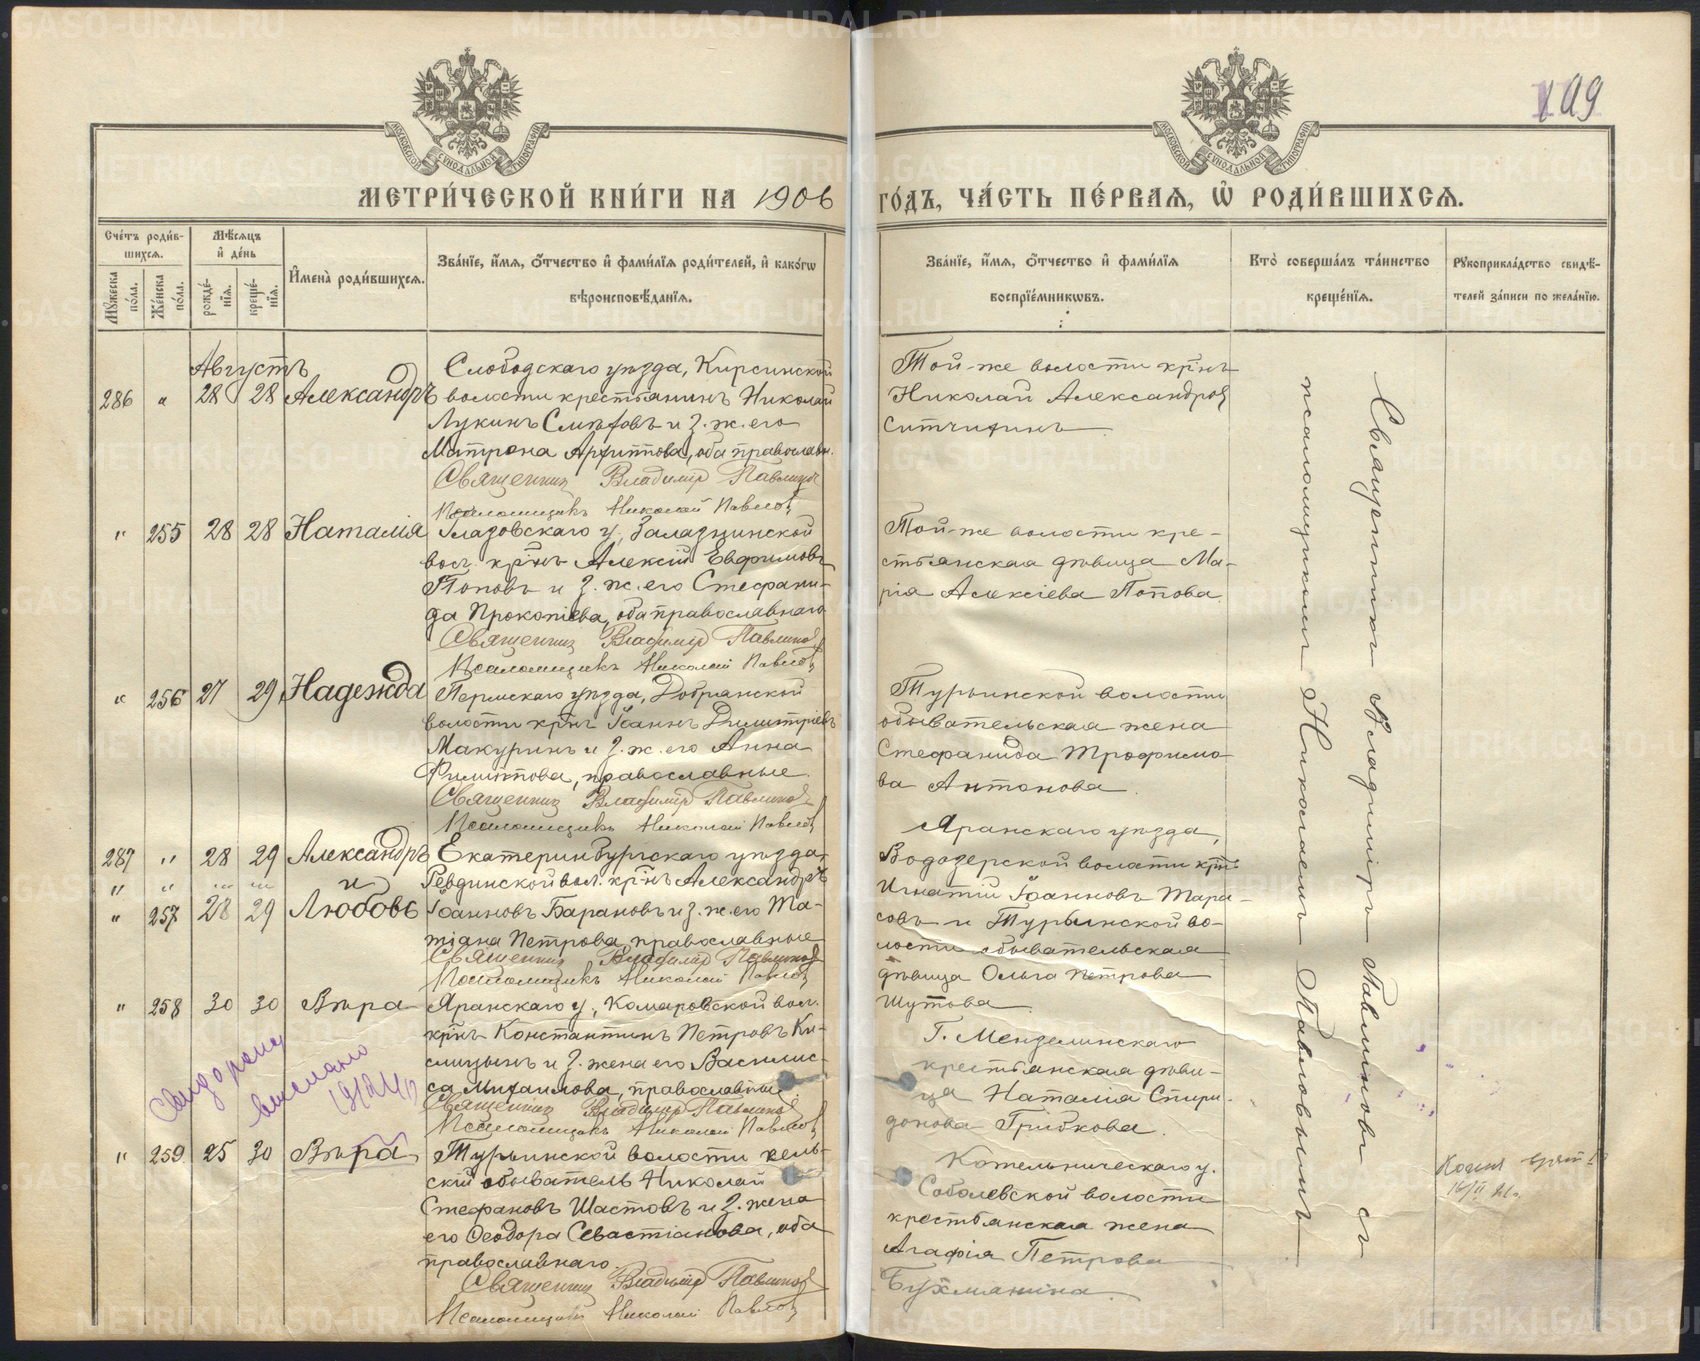 METRIKI.GASO-URAL.RU
199
МЕТРИ́ЧЕСКОЙ КНИ́ГИ НА 1906 ГО́ДЪ, ЧА́СТЬ ПЕ́РВАЯ, Ѡ҆ РОДИ́ВШИХСЯ.
МОСКОВСКОЙ СѴНОДАЛЬНОЙ ТИПОГРАФІИ
МОСКОВСКОЙ СѴНОДАЛЬНОЙ ТИПОГРАФІИ
Сче́тъ роди́вшихся.
Мꙋ́жеска по́ла.
Же́нска по́ла.
Мѣ́сяцъ и҆ де́нь
рожде́нїя.
креще́нїя.
И҆мена̀ роди́вшихся.
Зва́нїе, и҆́мя, ѻ҆́тчество и҆ фами́лїя роди́телей, и҆ како́гѡ вѣроисповѣ́данїя.
Зва́нїе, и҆́мя, ѻ҆́тчество и҆ фами́лїя воспрїе́мникѡвъ.
Кто̀ соверша́лъ та́инство креще́нїя.
Рꙋкоприкла́дство свидѣ́телей за́писи по жела́нїю.
Августъ
286 " 28 28 Александръ
Слободскаго уѣзда, Кирсинской
волости крестьянинъ Николай
Лукинъ Слитовъ и з. ж. его
Матрона Архиппова, оба православн.
Священник Владимір Павлинов
Псаломщикъ Николай Павлов
Той-же волости кр-нъ
Николай Александров
Ситчихинъ
" 255 28 28 Наталія
Глазовскаго у., Залазнинской
вол. кр-нъ Алексій Евфимовъ
Поповъ и з. ж. его Стефани-
да Прокопіева, оба православнаго
Священник Владимір Павлинов
Псаломщикъ Николай Павлов
Той-же волости кре-
стьянская дѣвица Ма-
рія Алексіева Попова
" 256 27 29 Надежда
Пермскаго уѣзда, Добрянской
волости кр-нъ Іоаннъ Димитріевъ
Макуринъ и з. ж. его Анна
Филиппова, православные.
Священник Владимір Павлинов
Псаломщикъ Николай Павлов
Турьинской волости
обывательская жена
Стефанида Трофимо-
ва Антонова.
287 " 28 29 Александръ
и
" 257 28 29 Любовь
Екатеринбургскаго уѣзда,
Ревдинской вол. кр-нъ Александръ
Іоанновъ Барановъ и з. ж. его Та-
тіана Петрова, православные
Священник Владимір Павлинов
Псаломщикъ Николай Павлов
Яранскаго уѣзда,
Водозерской волости кр-нъ
Игнатій Іоанновъ Тара-
совъ и Турьинской во-
лости обывательская
дѣвица Ольга Петрова
Шутова
" 258 30 30 Вѣра
Яранскаго у., Комаровской вол.
кр-нъ Константинъ Петровъ Ки-
слицынъ и з. жена его Василис-
са Михаилова, православные
Священник Владимір Павлинов
Псаломщикъ Николай Павлов
Г. Мензелинскаго
крестьянская дѣви-
ца Наталія Спири-
донова Грибкова.
" 259 25 30 Вѣра
Турьинской волости сель-
скій обыватель Николай
Стефановъ Шастовъ и з. жена
его Ѳеодора Севастіанова, оба
православнаго.
Священник Владимір Павлинов
Псаломщикъ Николай Павлов
Котельническаго у.
Соболевской волости
крестьянская жена
Агафія Петрова
Бухмянина.
Священникъ Владиміръ Павлиновъ съ
псаломщикомъ Николаемъ Павловымъ
выслано
Копия